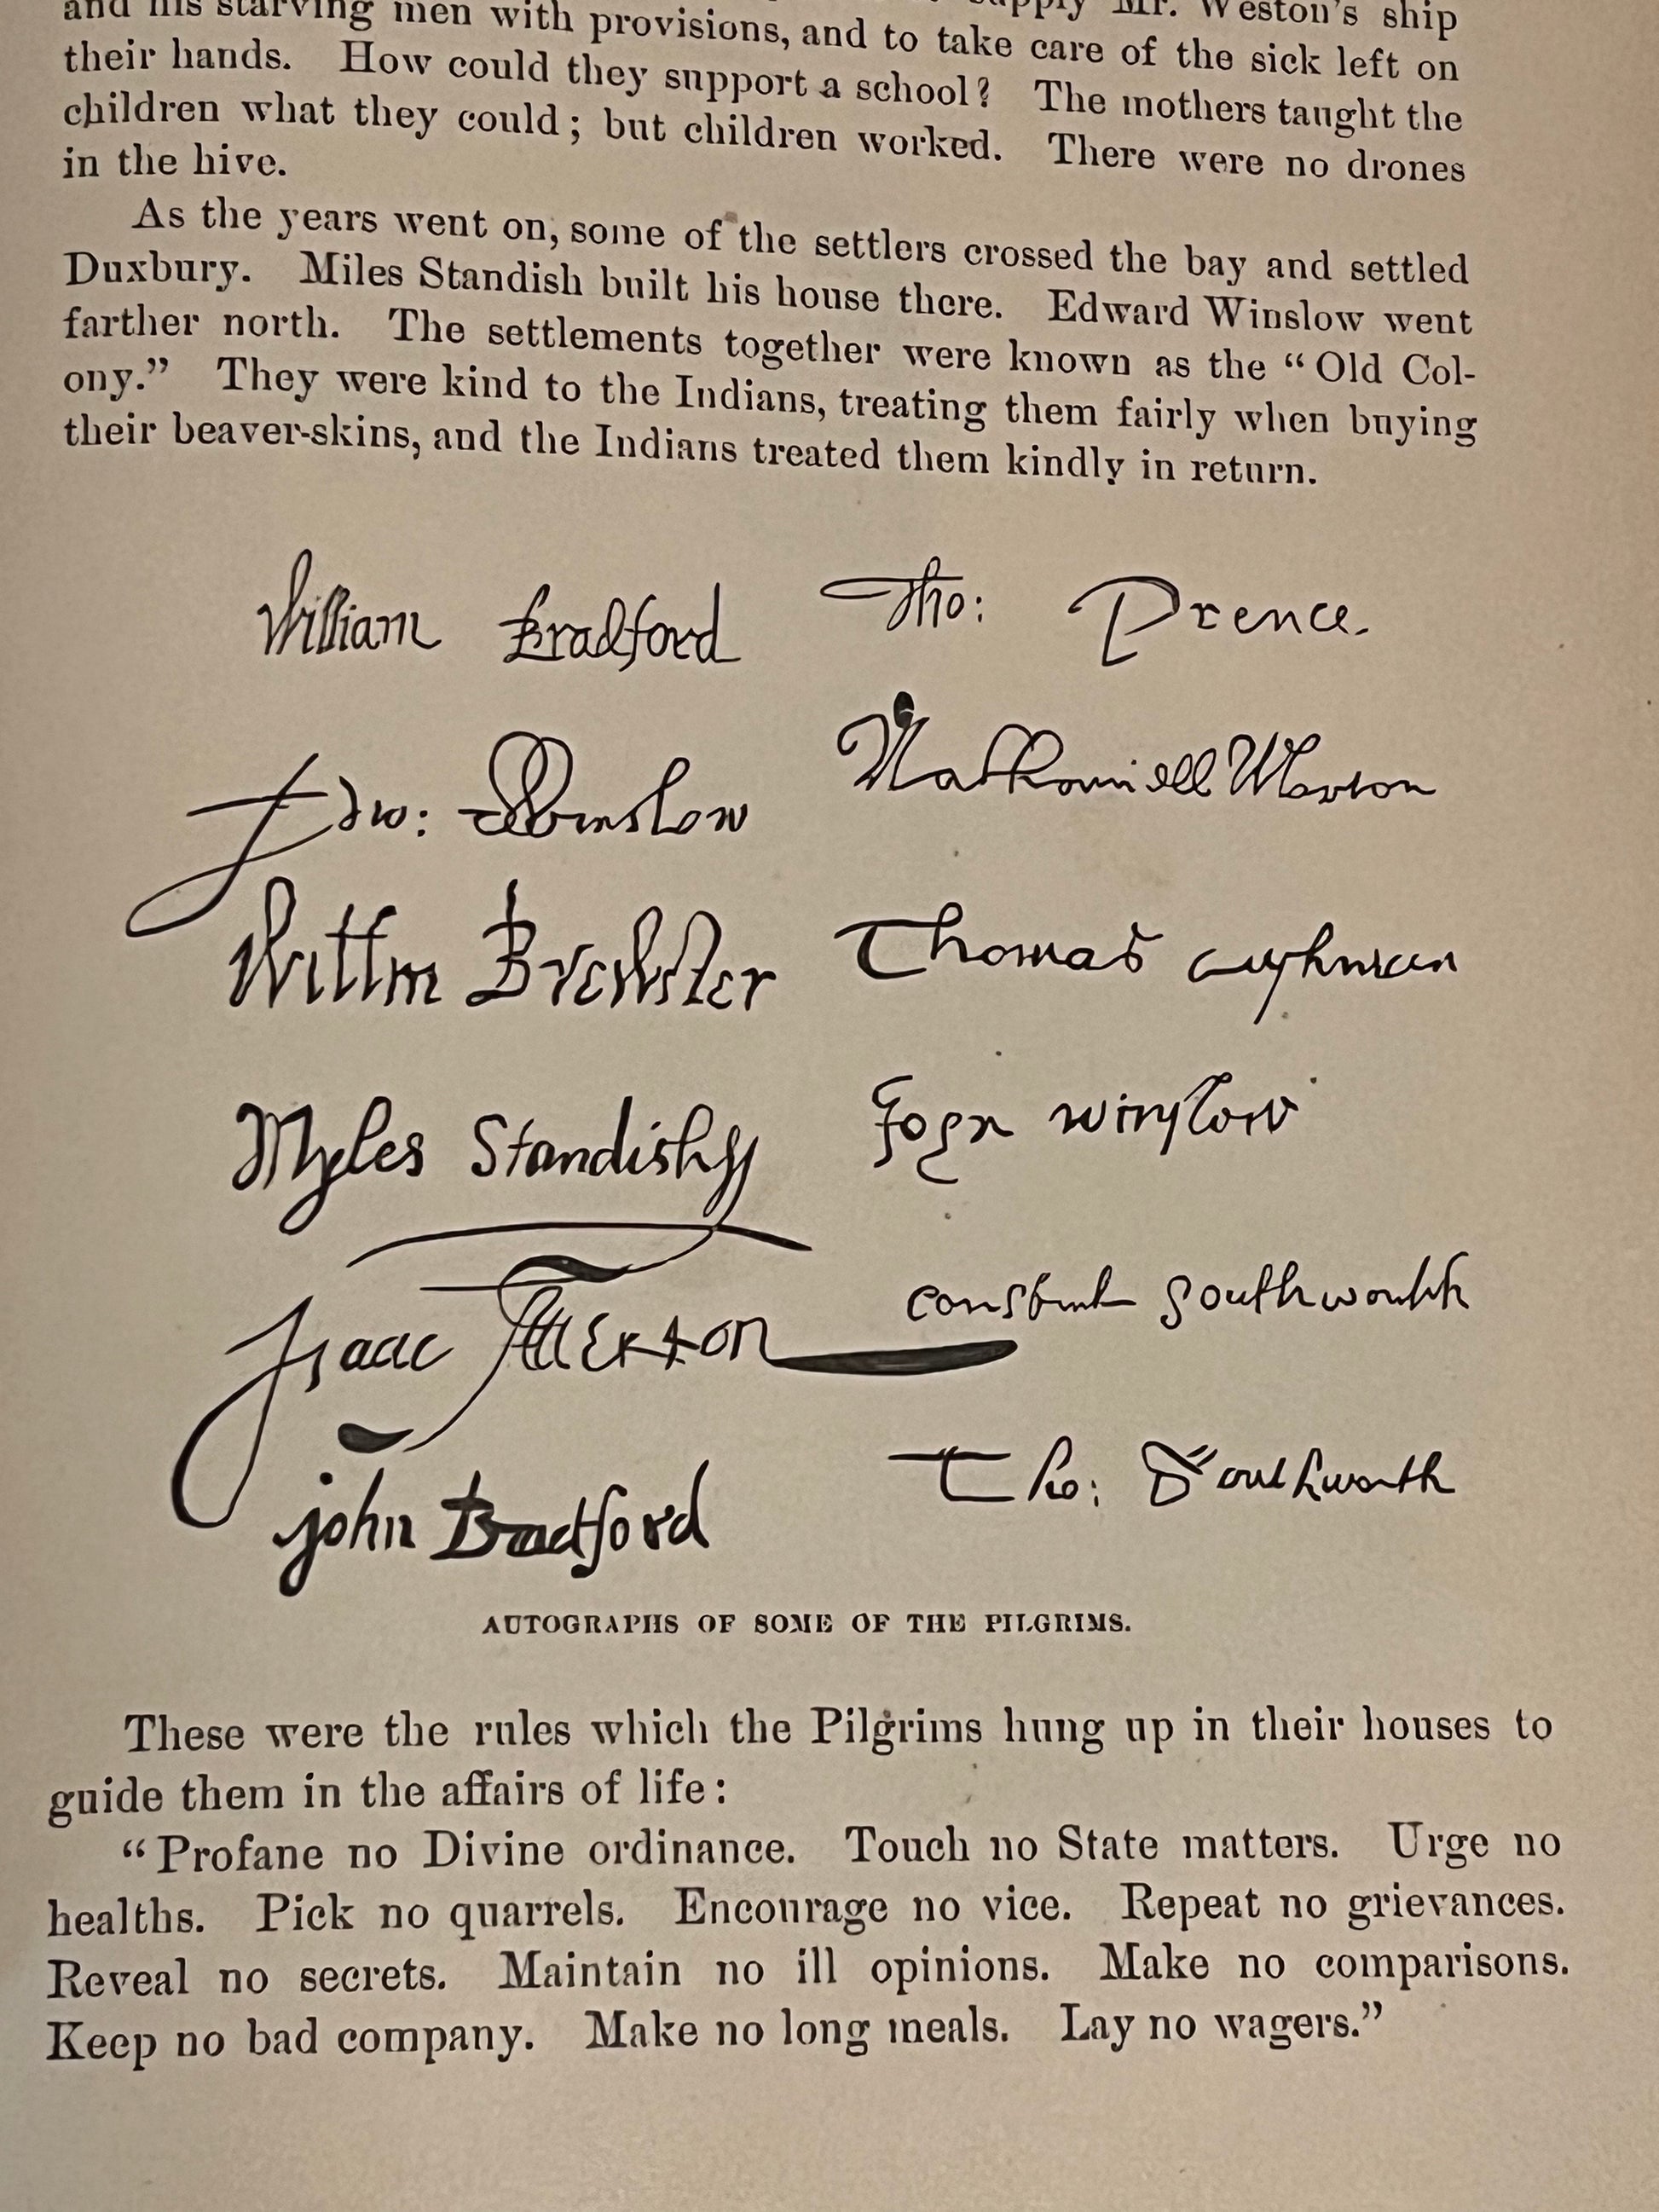 and his starving men with provisions, and to take care of the sick left on
supply Mr. Weston's ship
their hands. How could they support a school? The mothers taught the
children what they could; but children worked. There were no drones
in the hive.
As the years went on, some of the settlers crossed the bay and settled
Duxbury. Miles Standish built his house there. Edward Winslow went
farther north. The settlements together were known as the “Old Col-
ony.” They were kind to the Indians, treating them fairly when buying
their beaver-skins, and the Indians treated them kindly in return.
William Bradford
Tho: Prence.
Edw: Winslow
Nathaniell
Willm Brewster
Thomas Cushman
Myles Standish
Josia Winslow
Isaac Allerton
constant Southworth
john Bradford
Tho: Southworth
AUTOGRAPHS OF SOME OF THE PILGRIMS.
These were the rules which the Pilgrims hung up in their houses to
guide them in the affairs of life:
“Profane no Divine ordinance. Touch no State matters. Urge no
healths. Pick no quarrels. Encourage no vice. Repeat no grievances.
Reveal no secrets. Maintain no ill opinions. Make no comparisons.
Keep no bad company. Make no long meals. Lay no wagers.”